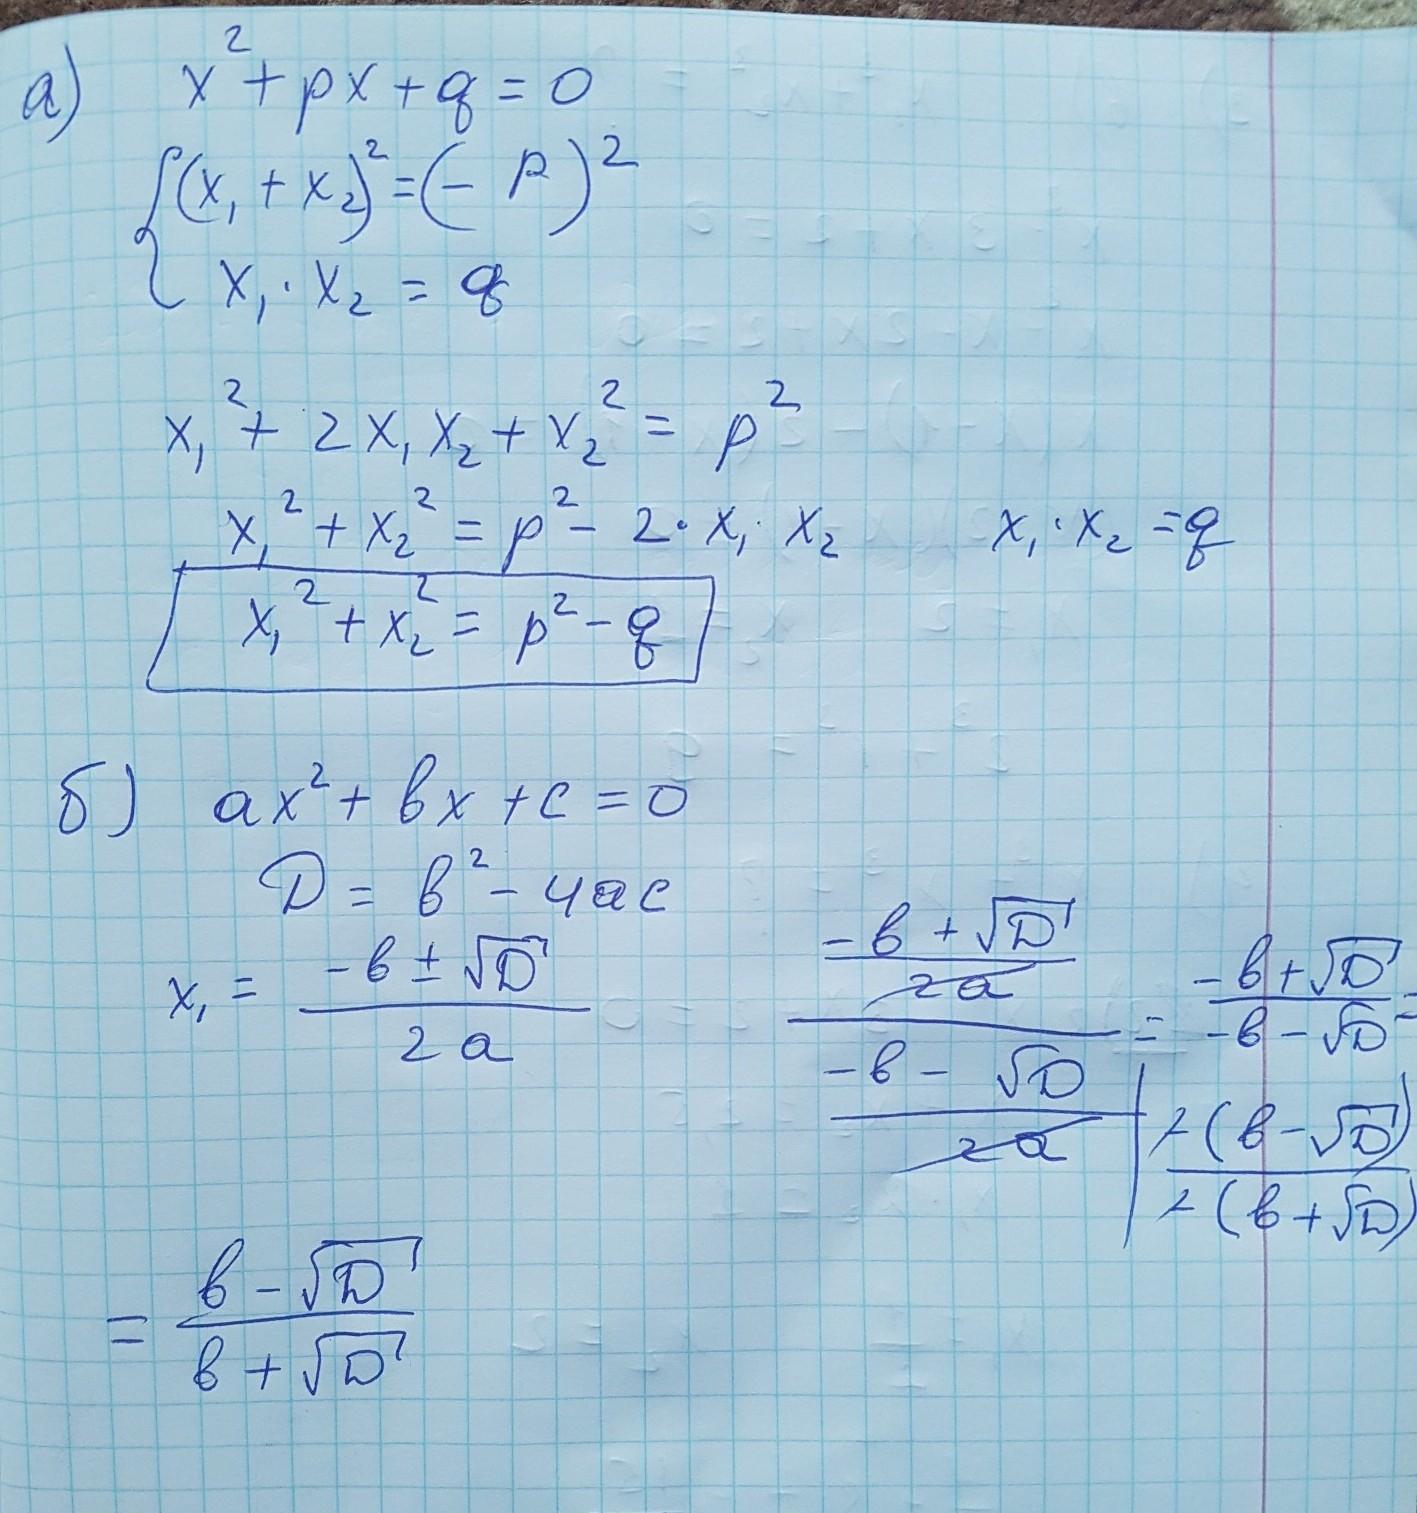 а) x² + px + q = 0
{ (x₁ + x₂)² = (- p)²
x₁ · x₂ = q
x₁² + 2x₁x₂ + x₂² = p²
x₁² + x₂² = p² - 2 · x₁ · x₂ x₁ · x₂ = q
x₁² + x₂² = p² - q
б) ax² + вx + c = 0
D = в² - 4ac
x₁ = (-в ± √D) / 2a
((-в + √D) / 2a) / ((-в - √D) / 2a) = (-в + √D) / (-в - √D) =
-(в - √D) / -(в + √D)
= (в - √D) / (в + √D)